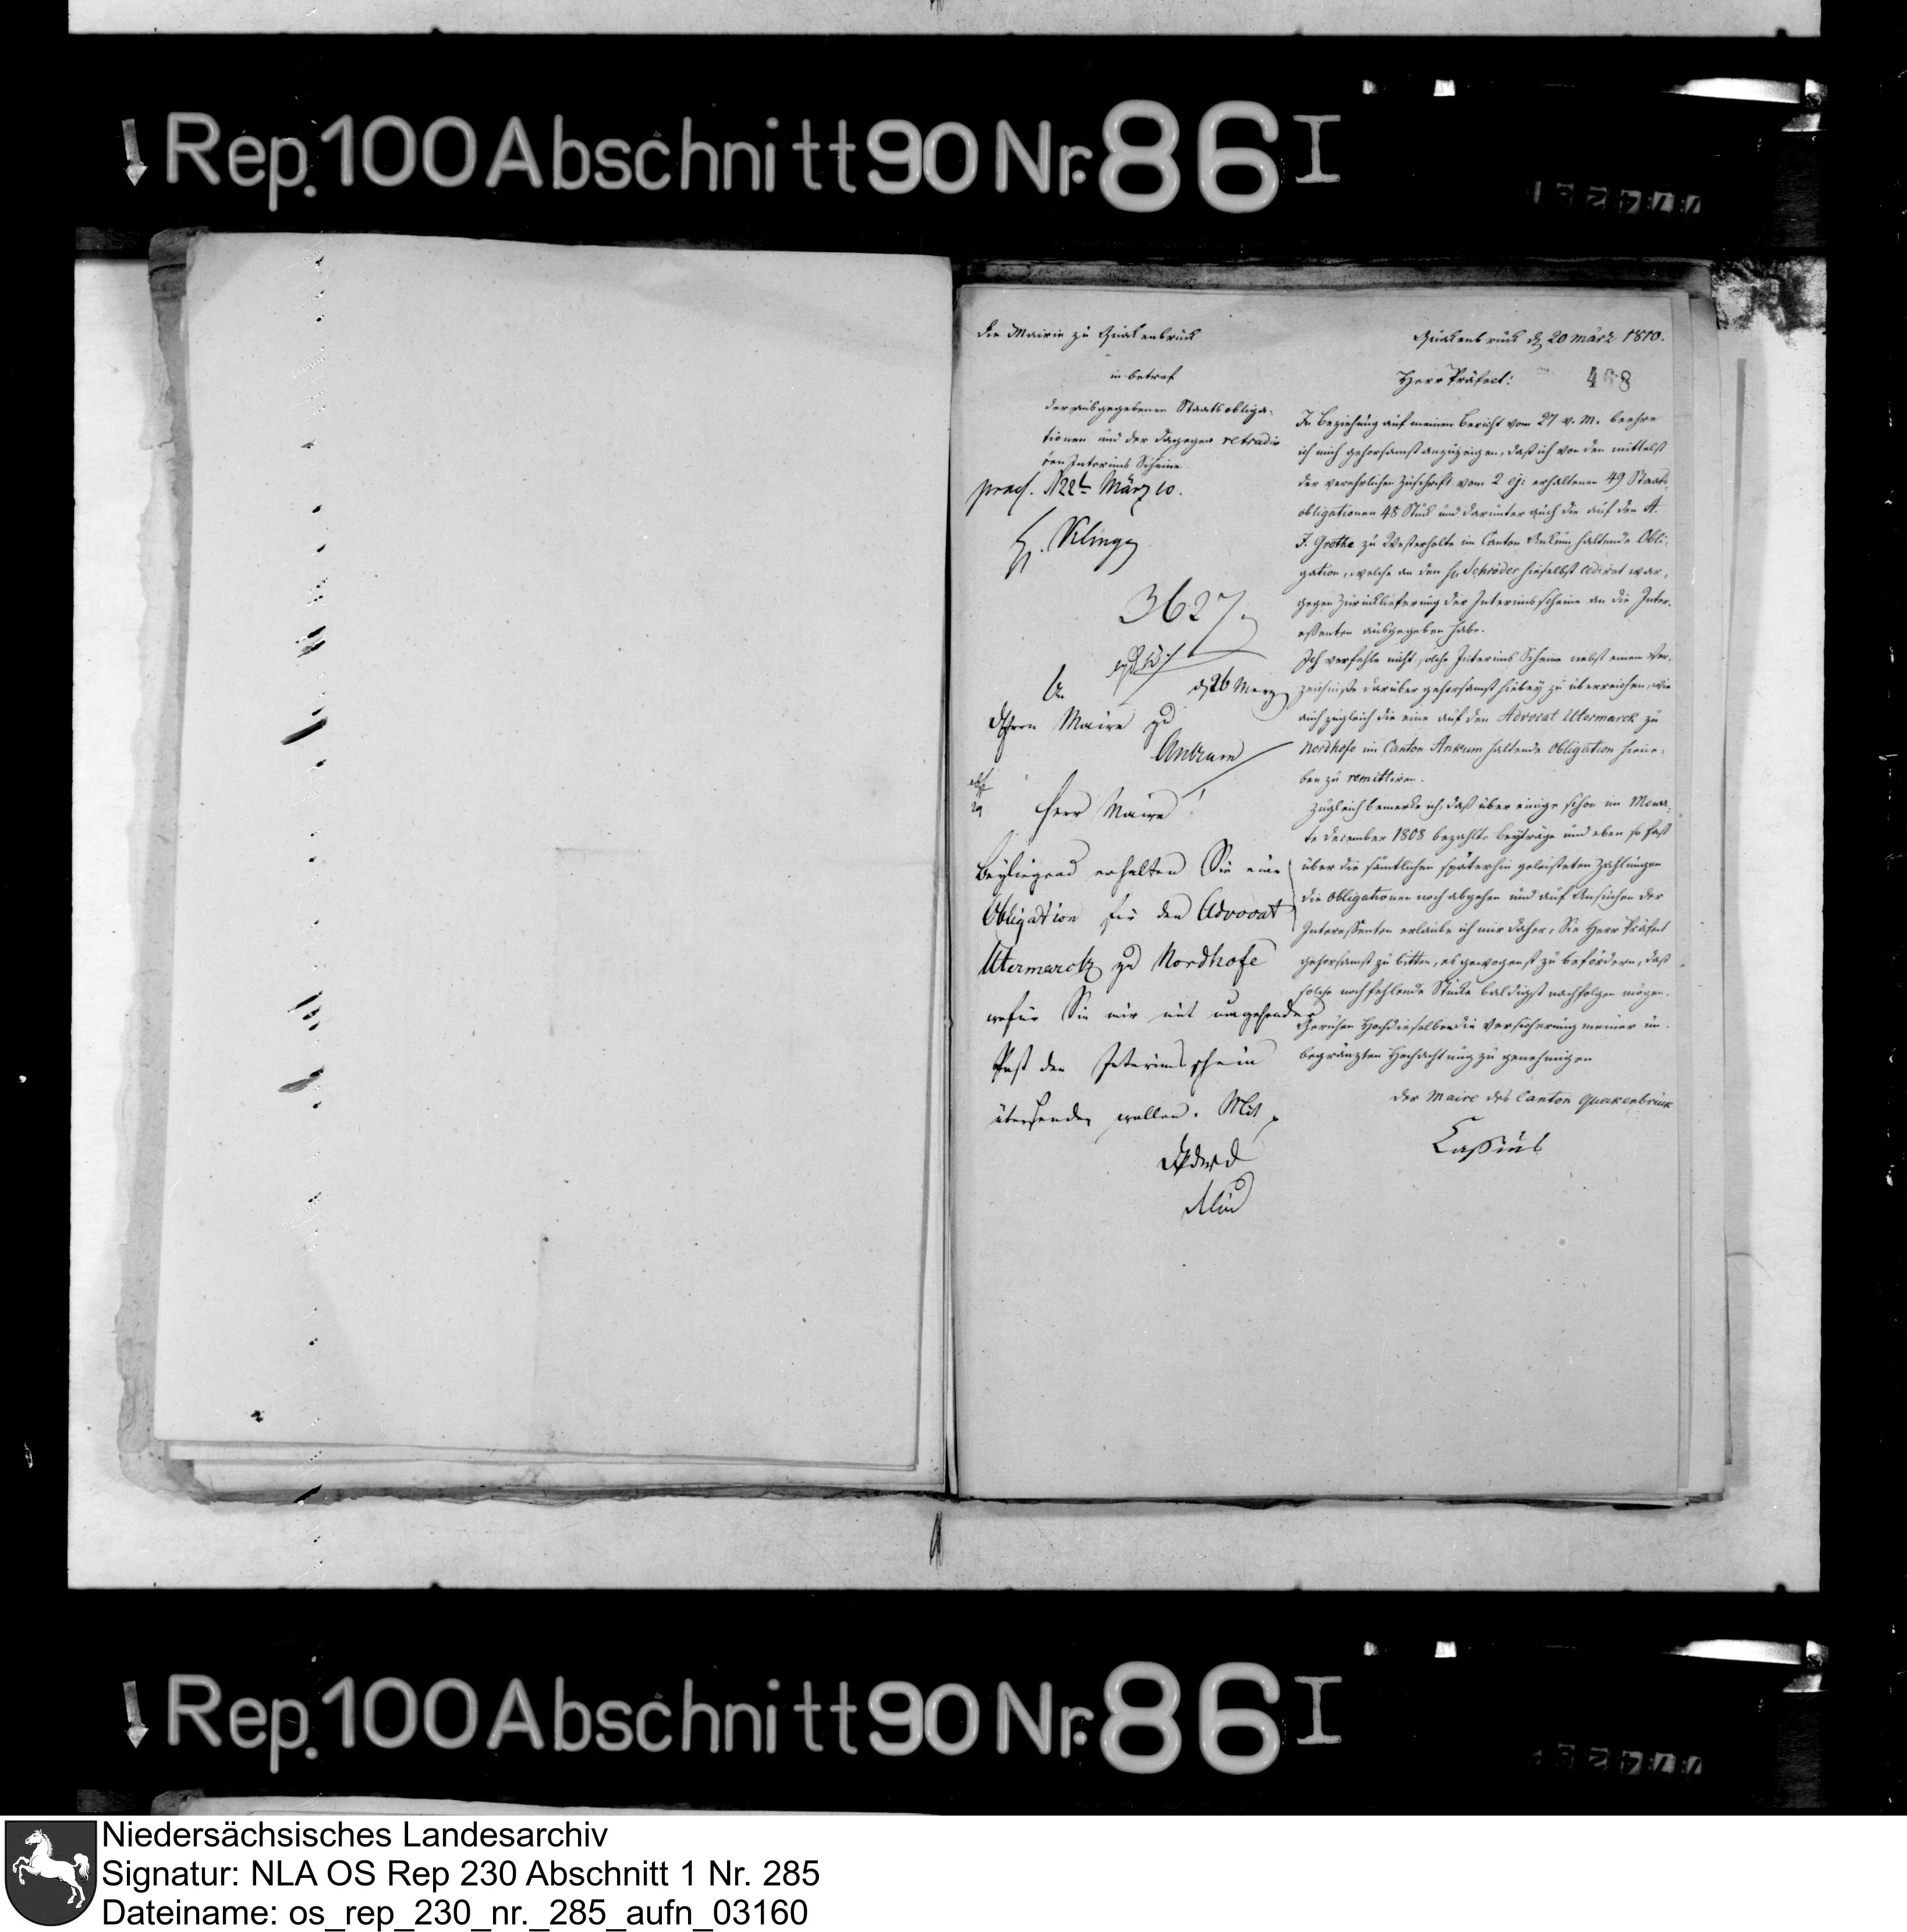 Rep. 100 Abschnitt 90 Nr. 86 I
die Mairie zu Quakenbrück
in betref
der ausgegebenen Staatsobliga-
tionen und der dagegen retradir
ten Interims Scheine.
praes. 22t März 10.
H. Klinge
3627
d 26 Merz
An
Herrn Maire zu
Ankum
Herr Maire!
Beyliegend erhalten Sie eine
Obligation für den Advocat
Utermarck zu Nordhofe
wofür Sie mir mit umgehender
Post den Interimsschein
übersenden wollen. Mit
Quakenbrück d 20 märz 1810.
Herr Präfect!
468
In Beziehung auf meinen Bericht vom 27 v. M. beehre
ich mich gehorsamst anzuzeigen, daß ich von den mittelst
der verehrlichen Zuschrift vom 2 erhaltenen 49 Staats
obligationen 48 Stück und darunter auch die auf den A.
F. Grothe zu Westerholte im Canton Ankum haltende Obli-
gation, welche an den H. Schröder hieselbst cediret war,
gegen Zurücklieferung der Interimsscheine an die Inter-
essenten ausgegeben habe.
Ich verfehle nicht, solche Interims Scheine nebst einem Ver-
zeichniße darüber gehorsamst hiebey zu überreichen, wie
auch zugleich die eine auf den Advocat Utermarck zu
Nordhofe im Canton Ankum haltende Obligation hiene-
ben zu remittiren.
Zugleich bemerke ich, daß über einige schon im Mona-
te december 1808 bezahlte Beyträge und eben so fast
über die sämtlichen späterhin geleisteten Zahlungen
die Obligationen noch abgehen und auf Ansuchen der
Interessenten erlaube ich mir daher, Sie Herr Präfect
gehorsamst zu bitten, es gewogenst zu befördern, daß
solche noch fehlende Stücke baldigst nachfolgen mögen.
Geruhen Hochdieselben die Versicherung meiner un-
begränzten Hochachtung zu genehmigen
der Maire des Canton Quakenbrück
Cassius
Rep. 100 Abschnitt 90 Nr. 86 I
Niedersächsisches Landesarchiv
Signatur: NLA OS Rep 230 Abschnitt 1 Nr. 285
Dateiname: os_rep_230_nr._285_aufn_03160